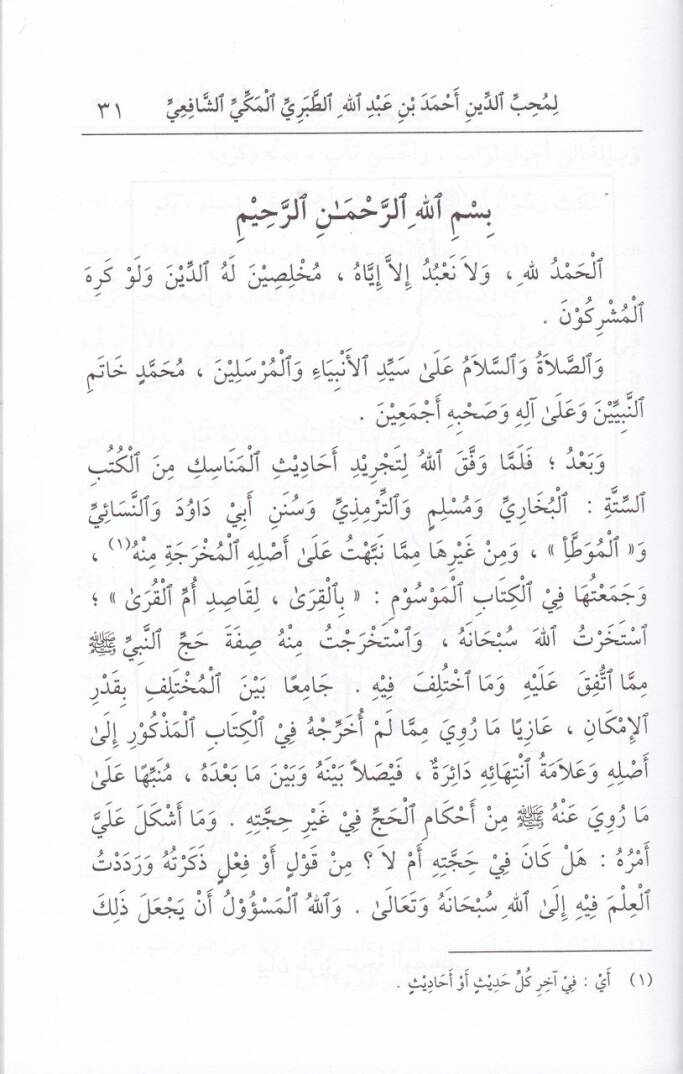 لِمُحِبِّ ٱلدِّينِ أَحْمَدَ بْنِ عَبْدِ ٱللهِ ٱلطَّبَرِيِّ ٱلْمَكِّيِّ ٱلشَّافِعِيِّ ٣١
بِسْمِ ٱللهِ ٱلرَّحْمَـٰنِ ٱلرَّحِيْمِ
ٱلْحَمْدُ للهِ ، وَلاَ نَعْبُدُ إِلاَّ إِيَّاهُ ، مُخْلِصِيْنَ لَهُ ٱلدِّيْنَ وَلَوْ كَرِهَ
ٱلْمُشْرِكُوْنَ .
وَٱلصَّلاَةُ وَٱلسَّلاَمُ عَلَىٰ سَيِّدِ ٱلأَنْبِيَاءِ وَٱلْمُرْسَلِيْنَ ، مُحَمَّدٍ خَاتَمِ
ٱلنَّبِيِّيْنَ وَعَلَىٰ آلِهِ وَصَحْبِهِ أَجْمَعِيْنَ .
وَبَعْدُ ؛ فَلَمَّا وَفَّقَ ٱللهُ لِتَجْرِيْدِ أَحَادِيْثِ ٱلْمَنَاسِكِ مِنَ ٱلْكُتُبِ
ٱلسِّتَّةِ : ٱلْبُخَارِيِّ وَمُسْلِمٍ وَٱلتِّرْمِذِيِّ وَسُنَنِ أَبِيْ دَاوُدَ وَٱلنَّسَائِيِّ
وَ« ٱلْمُوَطَّأِ » ، وَمِنْ غَيْرِهَا مِمَّا نَبَّهْتُ عَلَىٰ أَصْلِهِ ٱلْمُخْرَجَةِ مِنْهُ(١) ،
وَجَمَعْتُهَا فِيْ ٱلْكِتَابِ ٱلْمَوْسُوْمِ : « بِٱلْقِرَىٰ ، لِقَاصِدِ أُمِّ ٱلْقُرَىٰ » ؛
ٱسْتَخَرْتُ ٱللهَ سُبْحَانَهُ ، وَٱسْتَخْرَجْتُ مِنْهُ صِفَةَ حَجِّ ٱلنَّبِيِّ ﷺ
مِمَّا ٱتُّفِقَ عَلَيْهِ وَمَا ٱخْتُلِفَ فِيْهِ . جَامِعًا بَيْنَ ٱلْمُخْتَلِفِ بِقَدْرِ
ٱلإِمْكَانِ ، عَازِيًا مَا رُوِيَ مِمَّا لَمْ أُخَرِّجْهُ فِيْ ٱلْكِتَابِ ٱلْمَذْكُوْرِ إِلَىٰ
أَصْلِهِ وَعَلاَمَةُ ٱنْتِهَائِهِ دَائِرَةٌ ، فَيْصَلاً بَيْنَهُ وَبَيْنَ مَا بَعْدَهُ ، مُنَبِّهًا عَلَىٰ
مَا رُوِيَ عَنْهُ ﷺ مِنْ أَحْكَامِ ٱلْحَجِّ فِيْ غَيْرِ حِجَّتِهِ . وَمَا أَشْكَلَ عَلَيَّ
أَمْرُهُ : هَلْ كَانَ فِيْ حِجَّتِهِ أَمْ لاَ ؟ مِنْ قَوْلٍ أَوْ فِعْلٍ ذَكَرْتُهُ وَرَدَدْتُ
ٱلْعِلْمَ فِيْهِ إِلَىٰ ٱللهِ سُبْحَانَهُ وَتَعَالَىٰ . وَٱللهُ ٱلْمَسْؤُوْلُ أَنْ يَجْعَلَ ذَلِكَ
(١) أَيْ : فِيْ آخِرِ كُلِّ حَدِيْثٍ أَوْ أَحَادِيْثٍ .